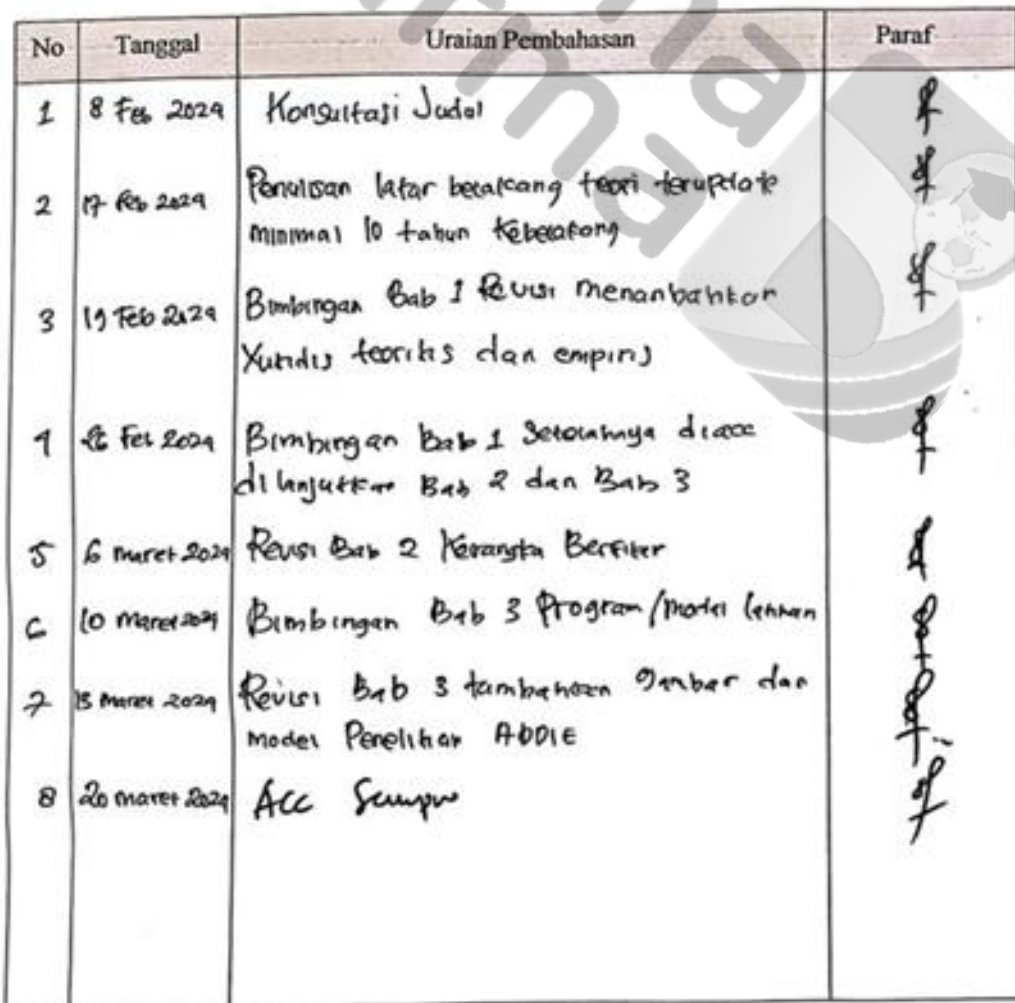 No Tanggal Uraian Pembahasan Paraf
1 8 Feb 2024 Konsultasi Judul
2 17 Feb 2024 Penulisan latar belakang teori terupdate
minimal 10 tahun kebelakang
3 19 Feb 2024 Bimbingan Bab 1 Revisi menambahkan
Yuridis teoritis dan empiris
4 Feb 2024 Bimbingan Bab 1 Setelahnya diacc
dilanjutkan Bab 2 dan Bab 3
5 6 maret 2024 Revisi Bab 2 Kerangka Berfikir
6 10 Maret 2024 Bimbingan Bab 3 Program/model
7 15 Maret 2024 Revisi Bab 3 tambahkan gambar dan
model Penelitian ADDIE
8 20 maret 2024 Acc Sempro